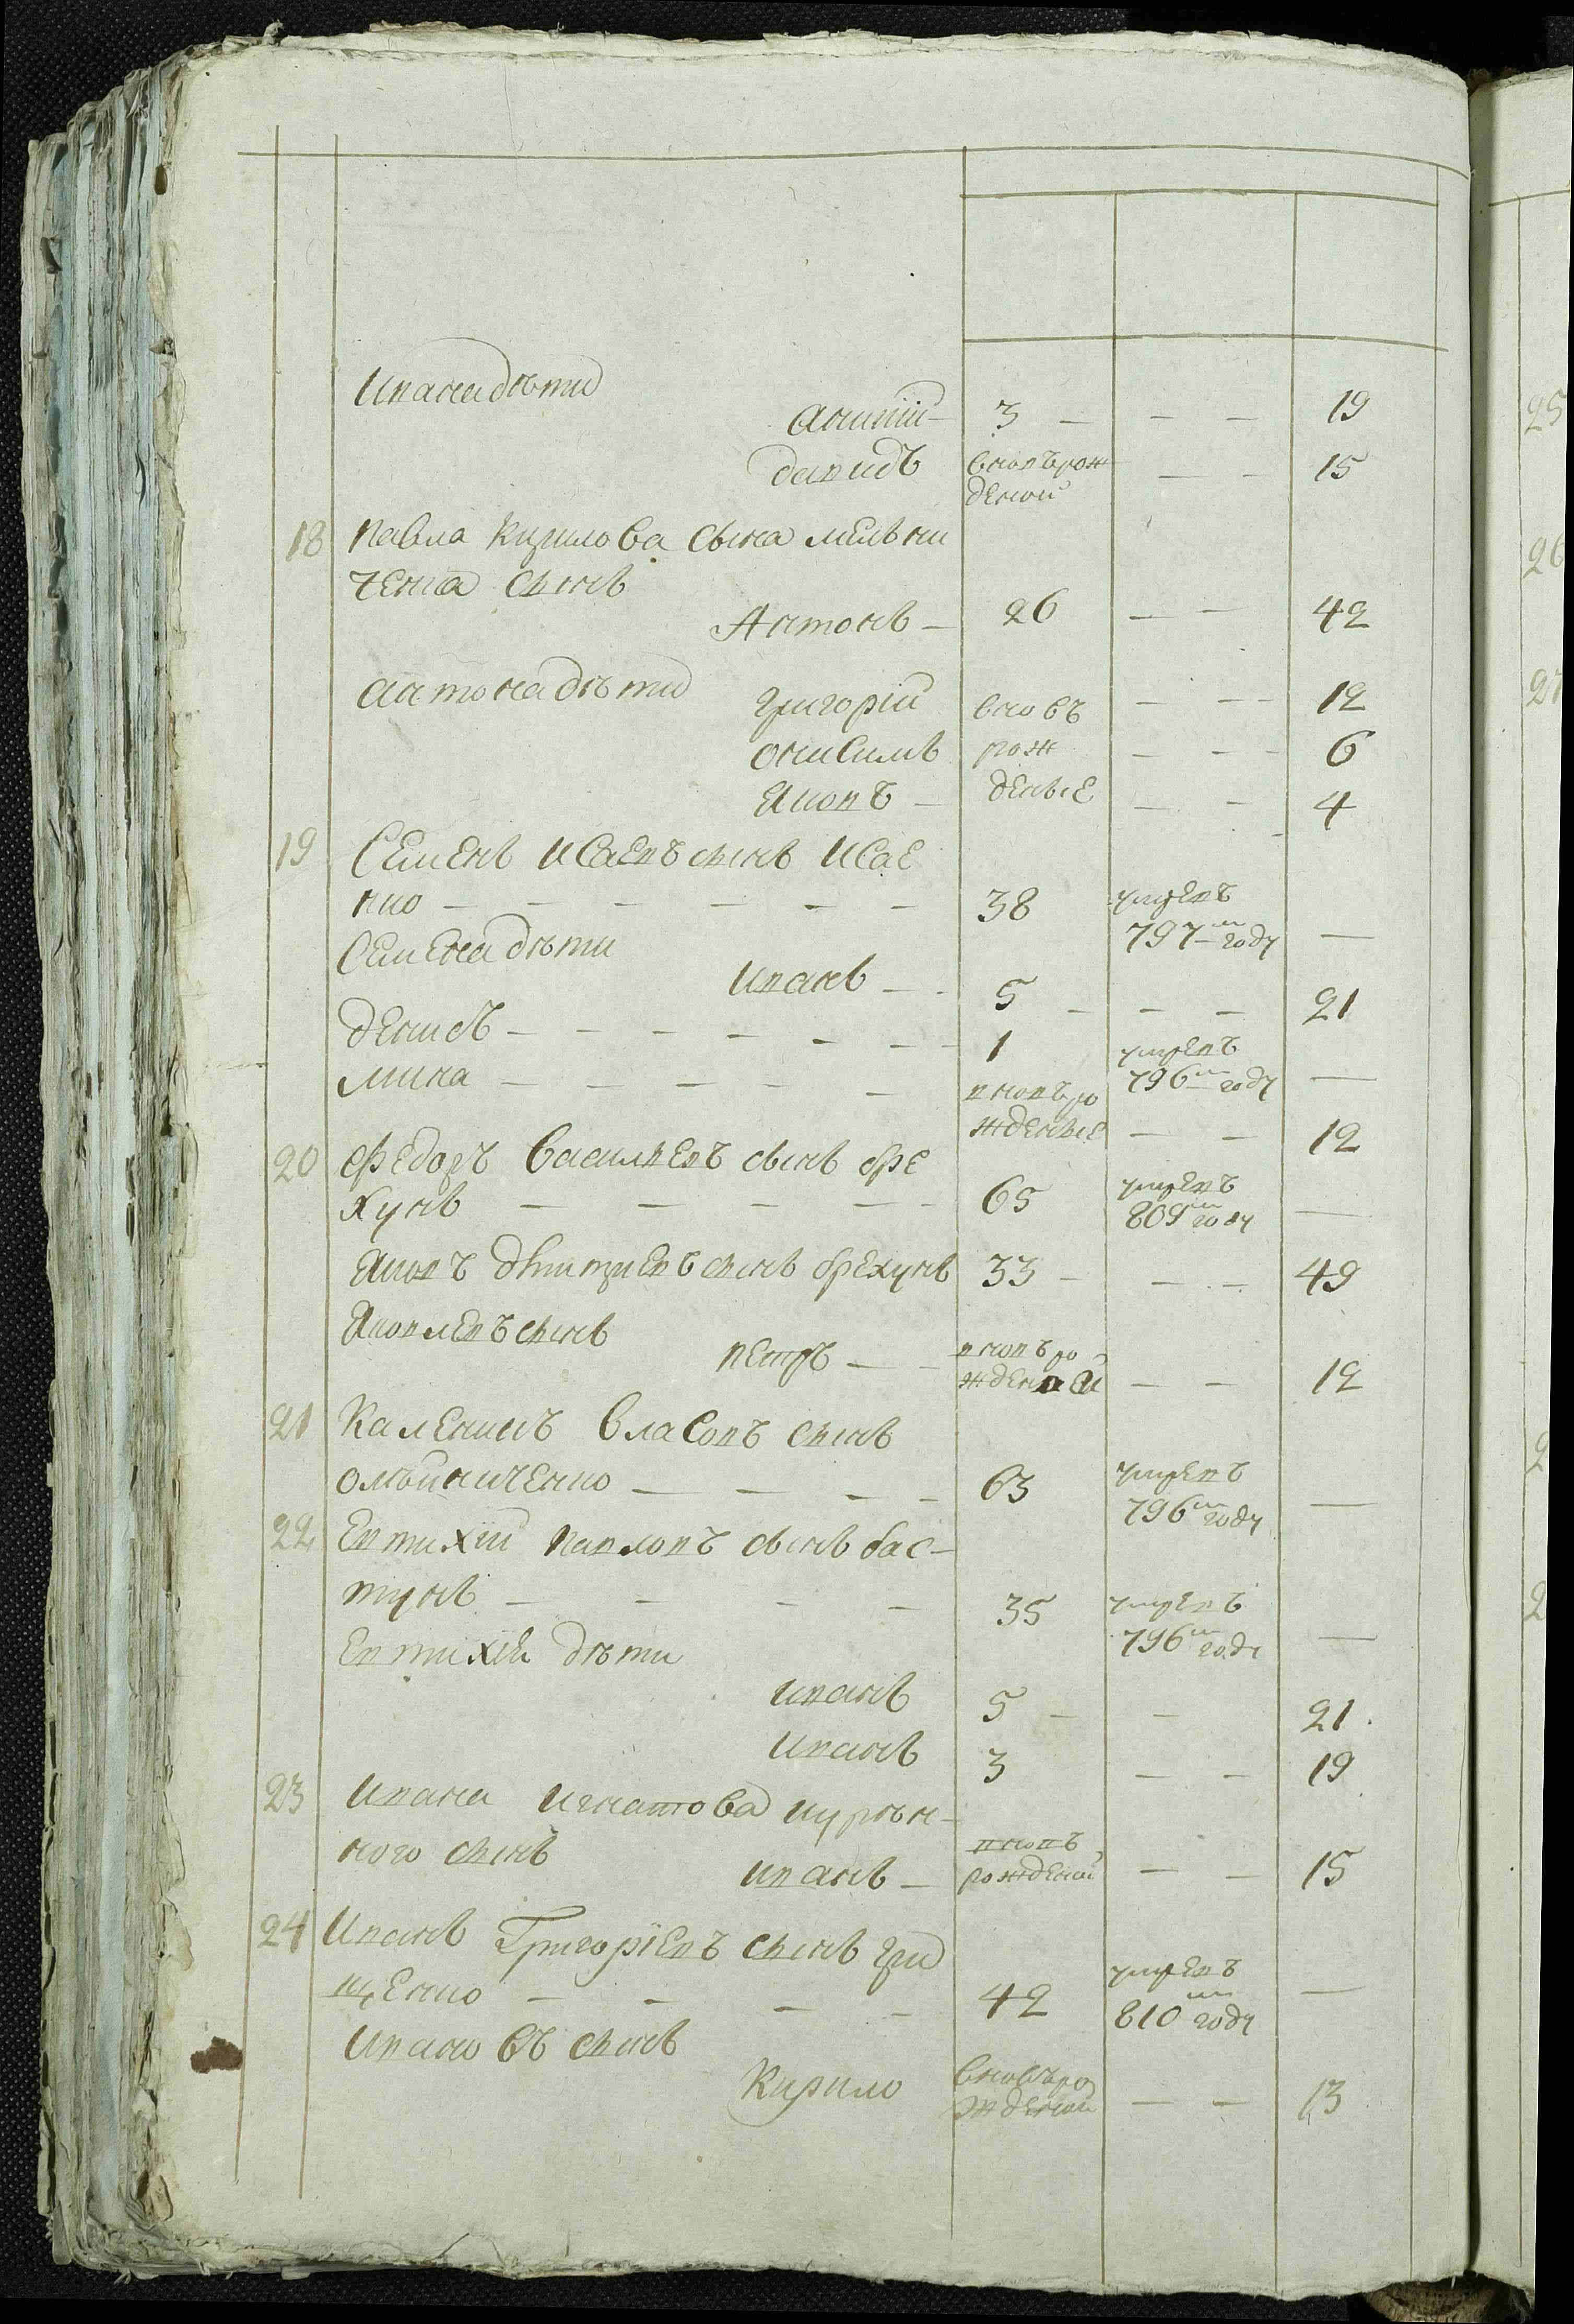 Ивана дѣти
3 — — — 19
давидъ вновърож — — 15
деной
18 павла кирилова сына мельни
ченка сынъ
Антонъ — 26 — — 42
антона дѣти
григорїй вновъ — — — 12
онисимъ рож — — — 6
Яковъ — деные — — 4
19 Семенъ исаевъ сынъ исае
нко — — — — — — 38 умревъ
797м году —
Семена дѣти
иванъ — 5 — — — 21
денисъ — — — — — — 1 умревъ
796м году —
мина — — — — — вновъро
жденые — — 12
20 федоръ василиевъ сынъ бре
хунъ — — — — — 65 умревъ
809м году —
Яковъ дмитриевъ сынъ брехунъ 33 — — — 49
Яковлевъ сынъ
петръ — — вновъро
жденой — — 12
21 каленикъ власовъ сынъ
олъйниченко — — — — 63 умревъ
796м году —
22 Евтихїй павловъ сынъ бас-
тунъ — — — — 35 умревъ
796м году —
Евтихїя дѣти
иванъ 5 — — 21
иванъ 3 — — 19
23 ивана игнатова курѣн-
ного сынъ вновъ
иванъ — рожденой — — 15
24 Иванъ Григорїевъ сынъ гри
щенко — — — — 42 умревъ
810м году —
ивановъ сынъ
кирило вновъро
жденой — — 13
25
26
27
2
2